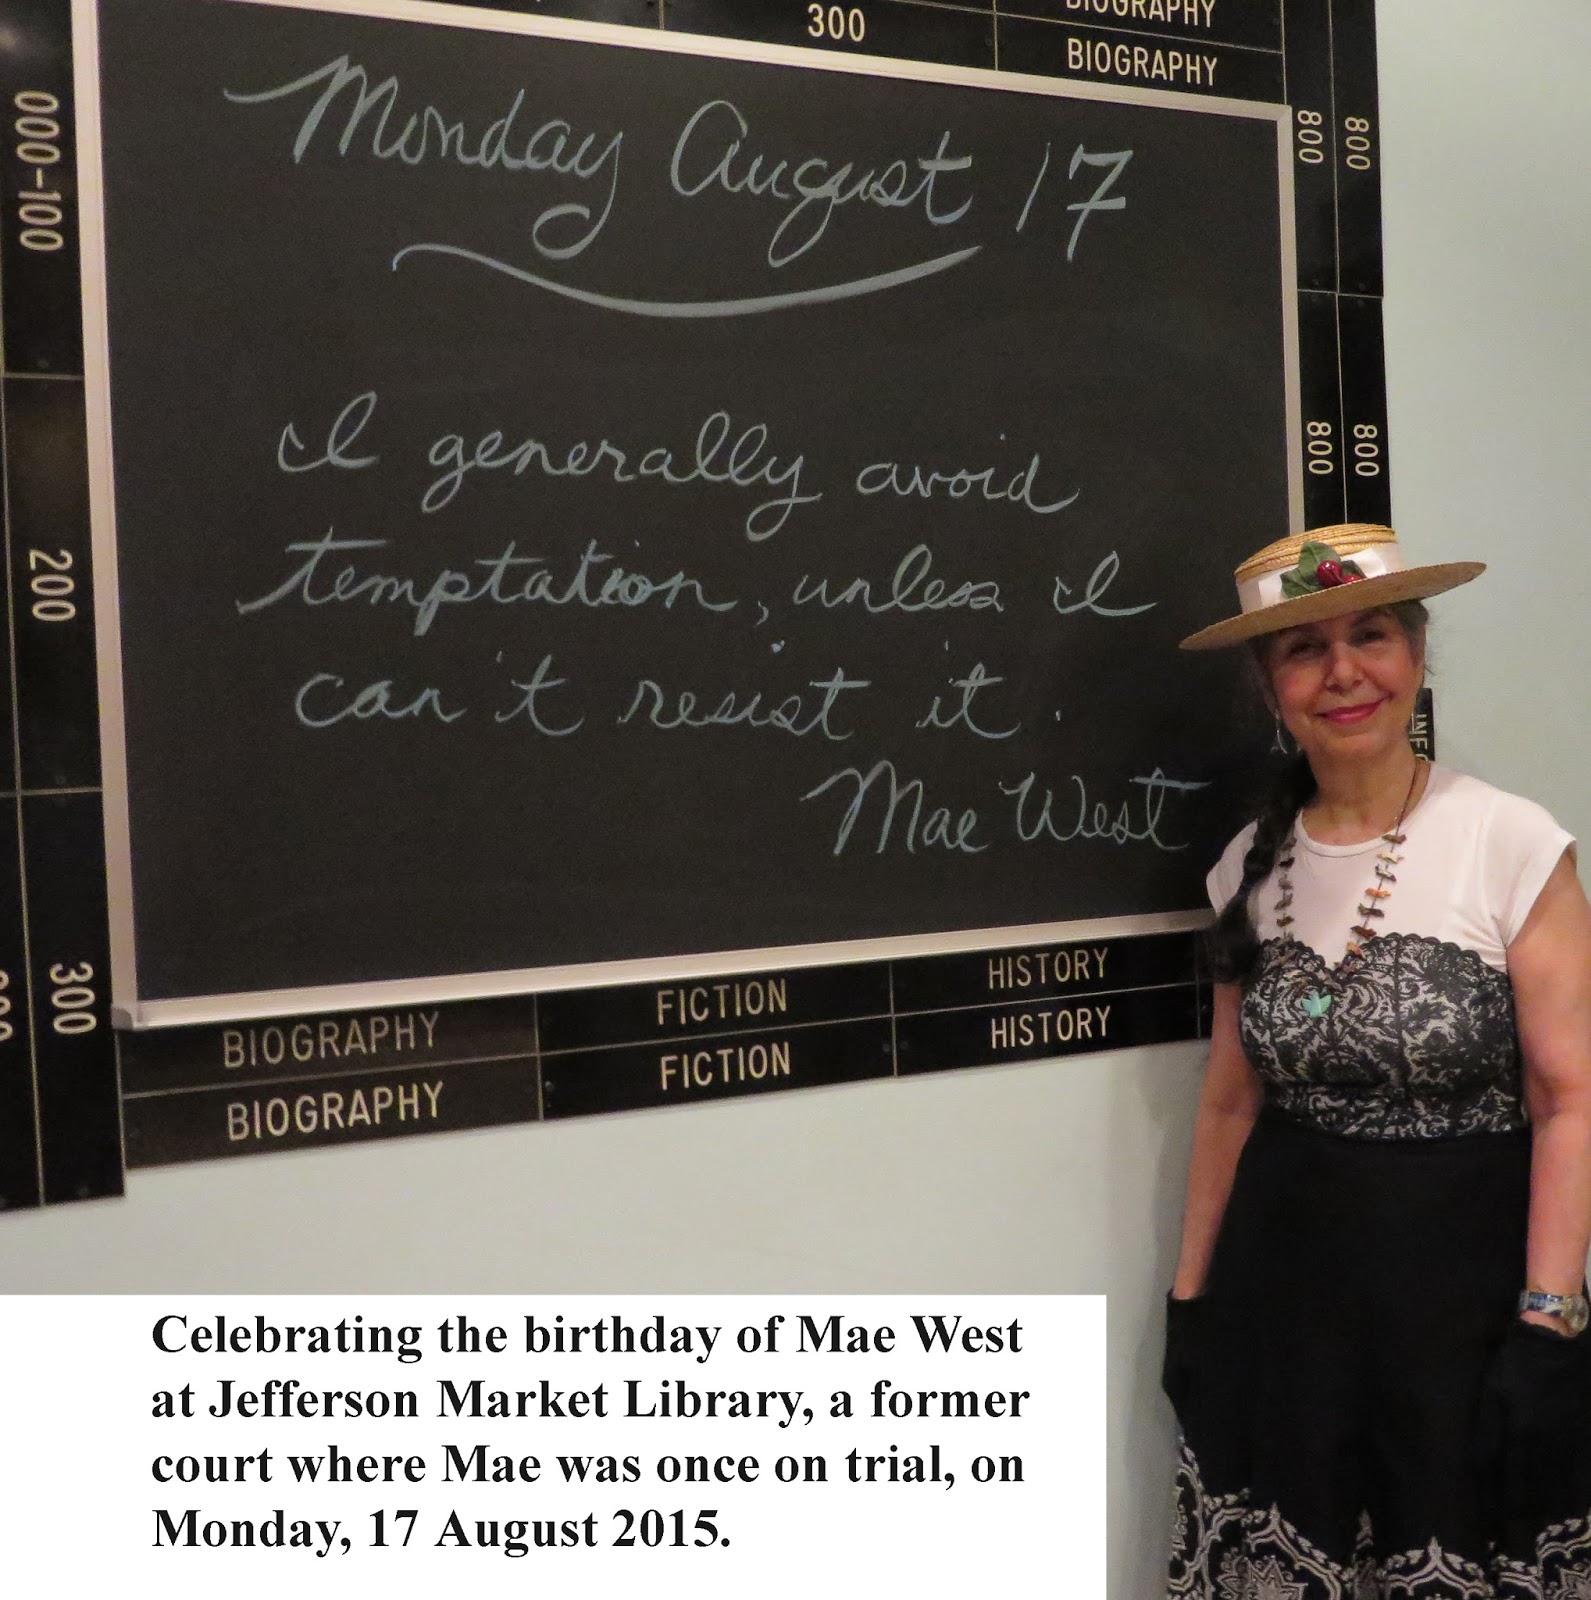 300
BIOGRAPHY
BIOGRAPHY
000-100
200
300
800
800
800
800
Monday August 17
I generally avoid
temptation, unless I
can't resist it.
Mae West
BIOGRAPHY
FICTION
HISTORY
BIOGRAPHY
FICTION
HISTORY
Celebrating the birthday of Mae West
at Jefferson Market Library, a former
court where Mae was once on trial, on
Monday, 17 August 2015.